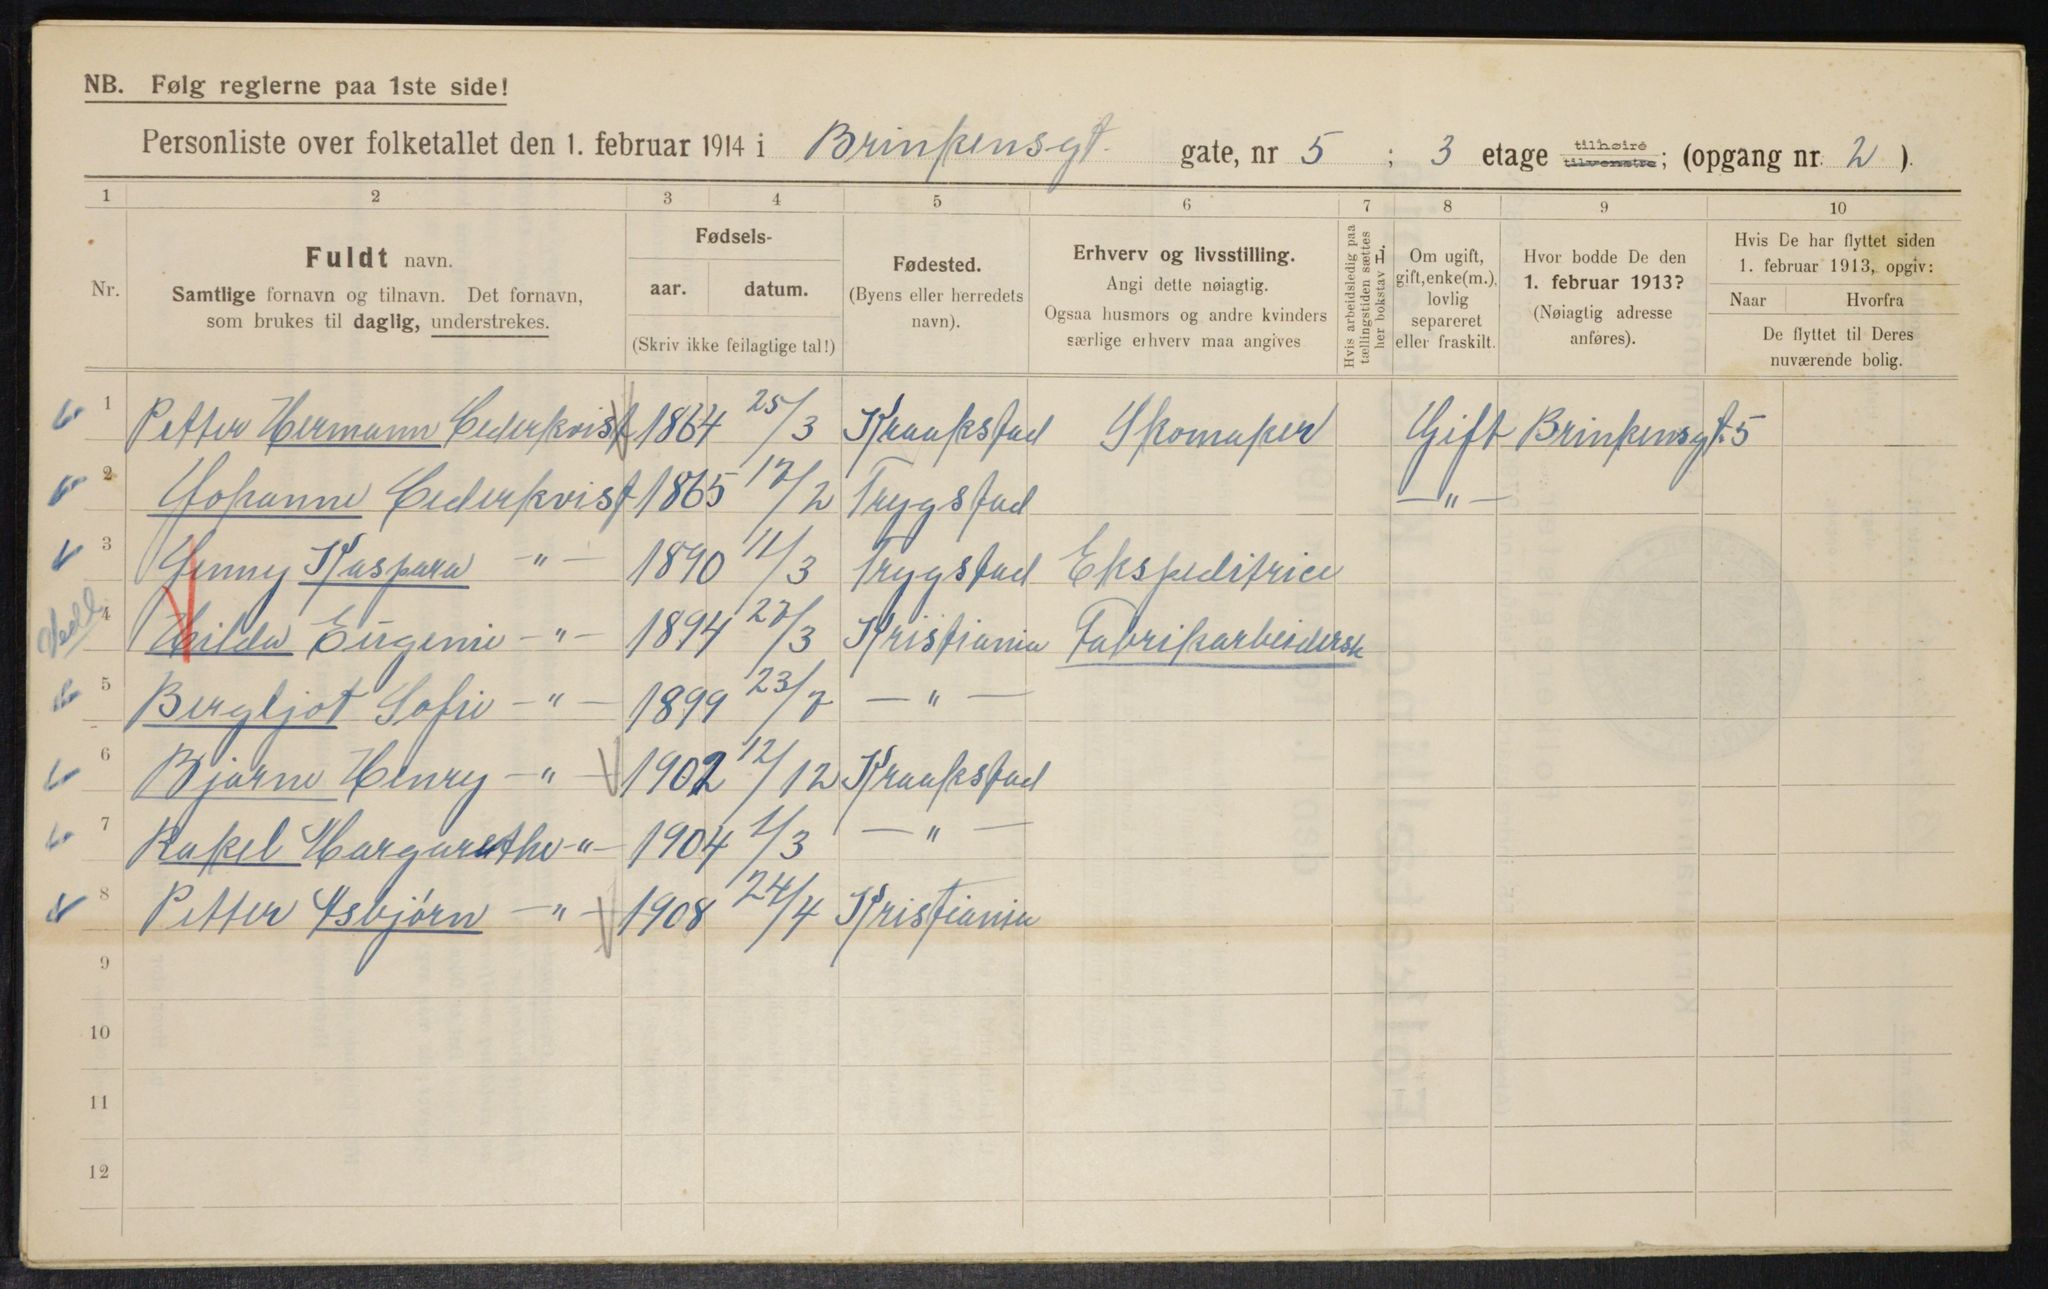 NB. Følg reglerne paa 1ste side!
Personliste over folketallet den 1. februar 1914 i Brinkensgt. gate, nr 5 ; 3 etage tilhøire tilvenstre; (opgang nr. 2 ).
1 2 3 4 5 6 7 8 9 10
Nr.
Fuldt navn.
Samtlige fornavn og tilnavn. Det fornavn,
som brukes til daglig, understrekes.
Fødsels-
aar. datum.
(Skriv ikke feilagtige tal!)
Fødested.
(Byens eller herredets
navn).
Erhverv og livsstilling.
Angi dette nøiagtig.
Ogsaa husmors og andre kvinders
særlige erhverv maa angives
Hvis arbeidsledig paa
tællingstiden sættes
her bokstav L.
Om ugift,
gift, enke(m.),
lovlig
separeret
eller fraskilt.
Hvor bodde De den
1. februar 1913?
(Nøiagtig adresse
anføres).
Hvis De har flyttet siden
1. februar 1913, opgiv:
Naar Hvorfra
De flyttet til Deres
nuværende bolig.
1 Petter Hermann Cederkvist 1864 25/3 Kraakstad Skomaker Gift Brinkensgt. 5
2 Johanne Cederkvist 1865 17/2 Trygstad —"—
3 Jenny Kaspara —"— 1890 11/3 Trygstad Ekspeditrice
4 Hilda Eugenie —"— 1894 27/3 Kristiania Fabrikarbeidersk
5 Bergljot Sofie —"— 1899 23/7 —"—
6 Bjarne Henry —"— 1902 12/12 Kraakstad
7 Rakel Margarethe —"— 1904 1/3 —"—
8 Petter Asbjörn —"— 1908 24/4 Kristiania
9
10
11
12